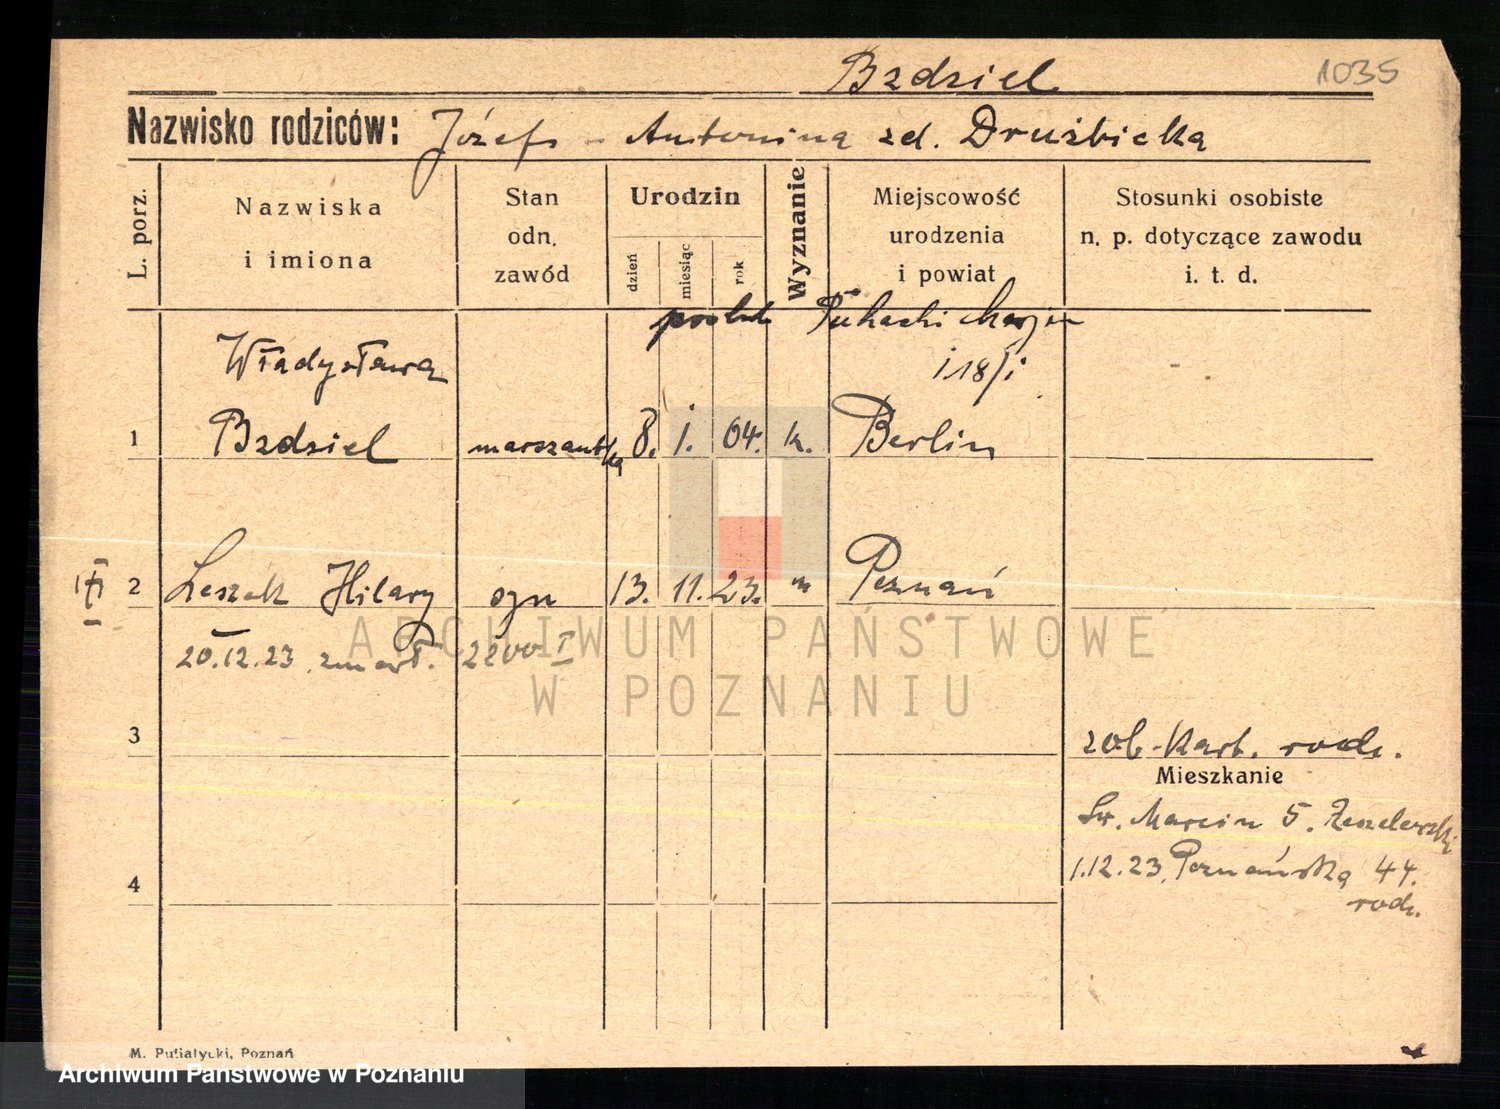 Bzdziel
1035
Nazwisko rodziców: Józef - Antonina zd. Drużbicka
L. porz.
Nazwiska i imiona
Stan odn. zawód
Urodzin
dzień miesiąc rok
Wyznanie
Miejscowość urodzenia i powiat
Stosunki osobiste n. p. dotyczące zawodu i. t. d.
poślub
Władysława
1 Bzdziel marszantka 8. 1. 04. k. Berlin
2 Leszek Hilary syn 13. 11. 23. " Poznań
20.12.23 zmarł. 2200 I
3
zob. Kart. rodz.
Mieszkanie
Św. Marcin 5.
1.12.23. Poznańska 44.
rodz.
4
ARCHIWUM PAŃSTWOWE
W POZNANIU
M. Putiatycki, Poznań
Archiwum Państwowe w Poznaniu